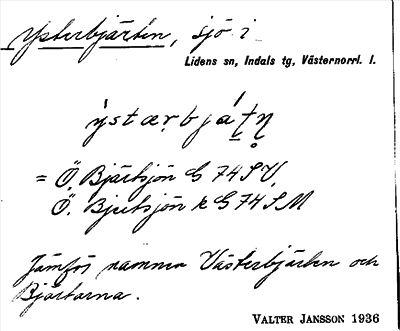 Ysterbjärten, sjö i
Lidens sn, Indals tg, Västernorrl. l.
ỳstæṛbjáṭn̥
= Ö. Bjärtsjön G 74 SV,
Ö. Bjertsjön k G 74 SM
Jämför namnen Västerbjärten och
Bjärtarna.
VALTER JANSSON 1936